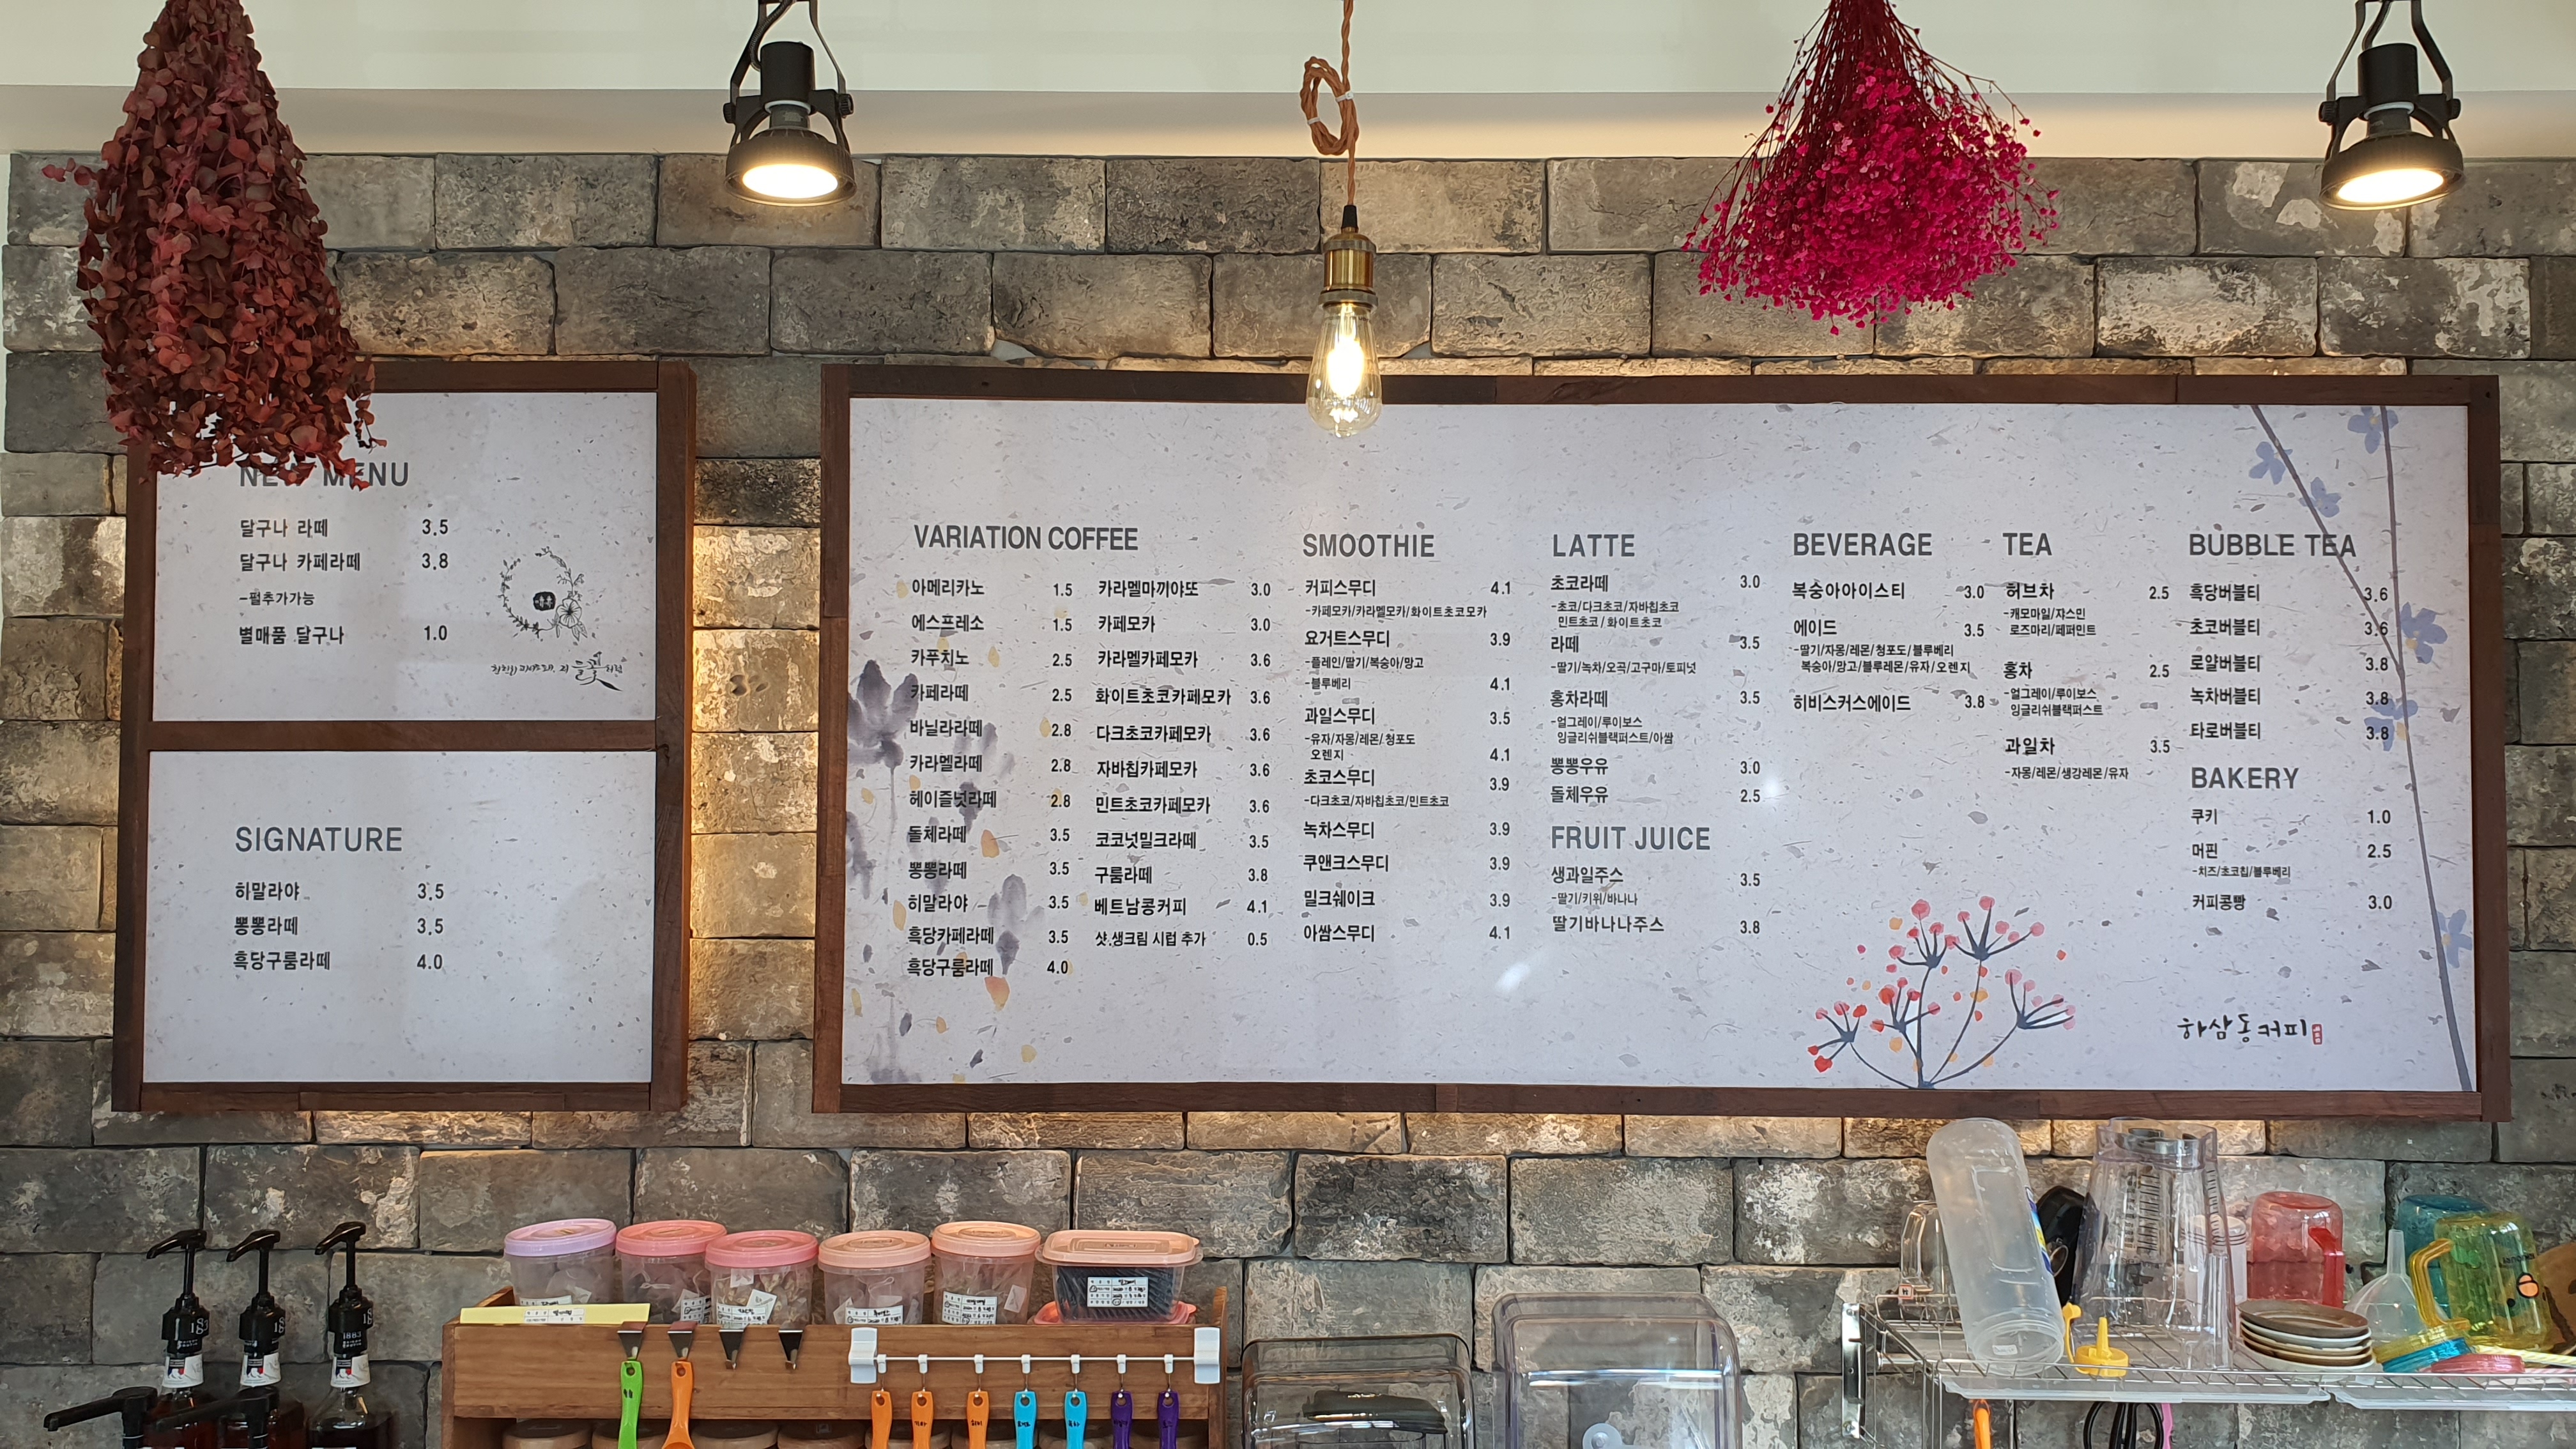 NEW MENU
달구나 라떼 3.5
달구나 카페라떼 3.8
-펄추가가능
별매품 달구나 1.0
SIGNATURE
히말라야 3.5
뽕뽕라떼 3.5
흑당구룸라떼 4.0
VARIATION COFFEE
아메리카노 1.5
에스프레소 1.5
카푸치노 2.5
카페라떼 2.5
바닐라라떼 2.8
카라멜라떼 2.8
헤이즐넛라떼 2.8
돌체라떼 3.5
뽕뽕라떼 3.5
히말라야 3.5
흑당카페라떼 3.5
흑당구룸라떼 4.0
카라멜마끼야또 3.0
카페모카 3.0
카라멜카페모카 3.6
화이트초코카페모카 3.6
다크초코카페모카 3.6
자바칩카페모카 3.6
민트초코카페모카 3.6
코코넛밀크라떼 3.5
구룸라떼 3.8
베트남콩커피 4.1
샷,생크림 시럽 추가 0.5
SMOOTHIE
커피스무디 4.1
-카페모카/카라멜모카/화이트초코모카
요거트스무디 3.9
-플레인/딸기/복숭아/망고
-블루베리 4.1
과일스무디 3.5
-유자/자몽/레몬/청포도
오렌지 4.1
초코스무디 3.9
-다크초코/자바칩초코/민트초코
녹차스무디 3.9
쿠앤크스무디 3.9
밀크쉐이크 3.9
아쌈스무디 4.1
LATTE
초코라떼 3.0
-초코/다크초코/자바칩초코
민트초코/화이트초코
라떼 3.5
-딸기/녹차/오곡/고구마/토피넛
홍차라떼 3.5
-얼그레이/루이보스
잉글리쉬블랙퍼스트/아쌈
뽕뽕우유 3.0
돌체우유 2.5
FRUIT JUICE
생과일주스 3.5
-딸기/키위/바나나
딸기바나나주스 3.8
BEVERAGE
복숭아아이스티 3.0
에이드 3.5
-딸기/자몽/레몬/청포도/블루베리
복숭아/망고/블루레몬/유자/오렌지
히비스커스에이드 3.8
TEA
허브차 2.5
-캐모마일/쟈스민
로즈마리/페퍼민트
홍차 2.5
-얼그레이/루이보스
잉글리쉬블랙퍼스트
과일차 3.5
-자몽/레몬/생강레몬/유자
BUBBLE TEA
흑당버블티 3.6
초코버블티 3.6
로얄버블티 3.8
녹차버블티 3.8
타로버블티 3.8
BAKERY
쿠키 1.0
머핀 2.5
-치즈/초코칩/블루베리
커피콩빵 3.0
하삼동커피
1883